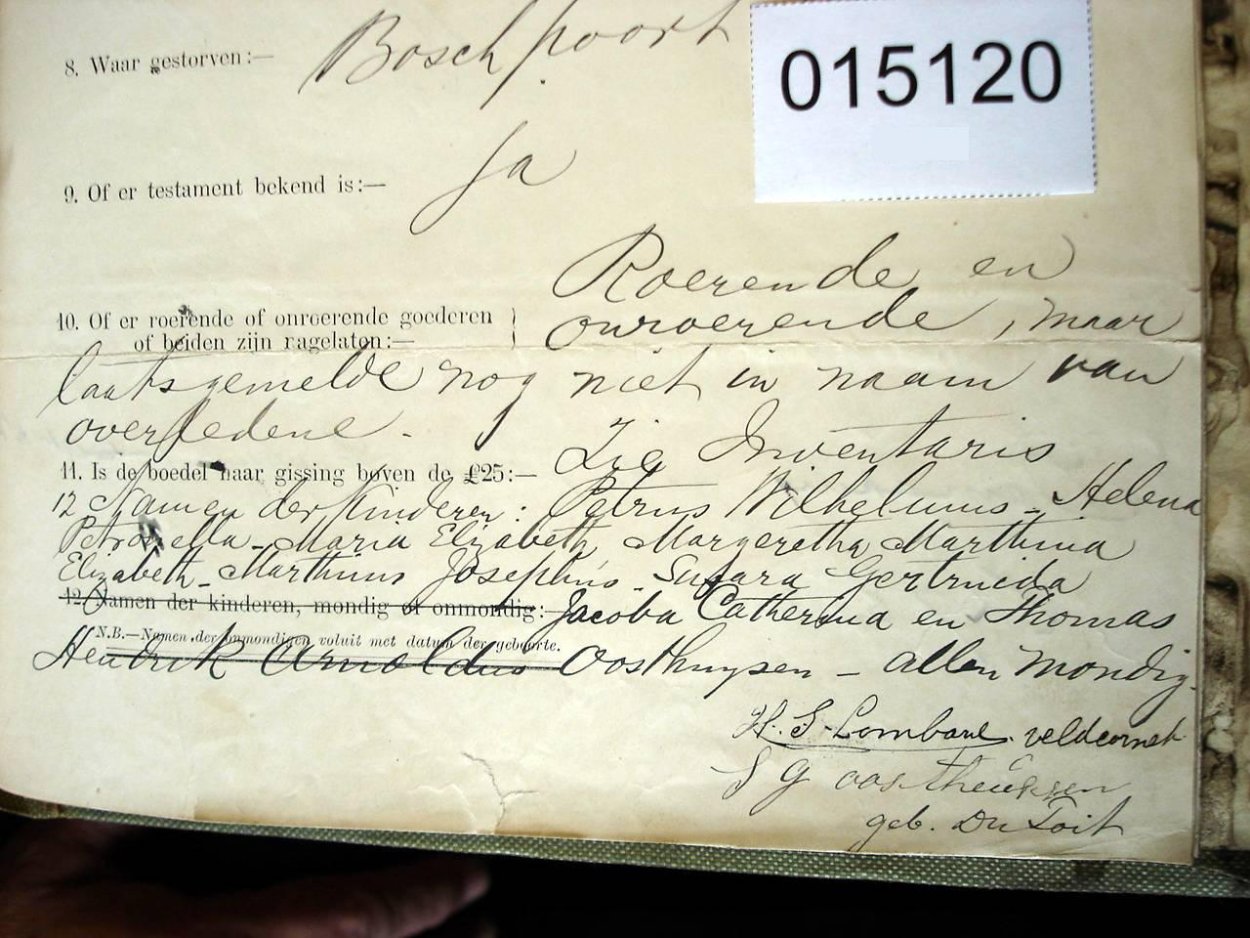 8. Waar gestorven:— Boschpoort
015120
9. Of er testament bekend is:— Ja
Roerende en
10. Of er roerende of onroerende goederen } onroerende, maar
of beiden zijn nagelaten:—
laatsgemelde nog niet in naam van
overledene.
11. Is de boedel naar gissing boven de £25:— Zie Inventaris
12 Namen der Kinderen: Petrus Wilhelmus - Helena
Petronella - Maria Elizabeth Margeretha Marthina
Elizabeth - Marthinus Josephus - Susara Gertruida
12. Namen der kinderen, mondig of onmondig:— Jacoba Catherina en Thomas
N.B.—Namen der onmondigen voluit met datum der geboorte.
Hendrik Arnoldus Oosthuysen - allen mondig.
H. S. Lombard. veldcornet
S G oostheuysen
geb. Du Toit